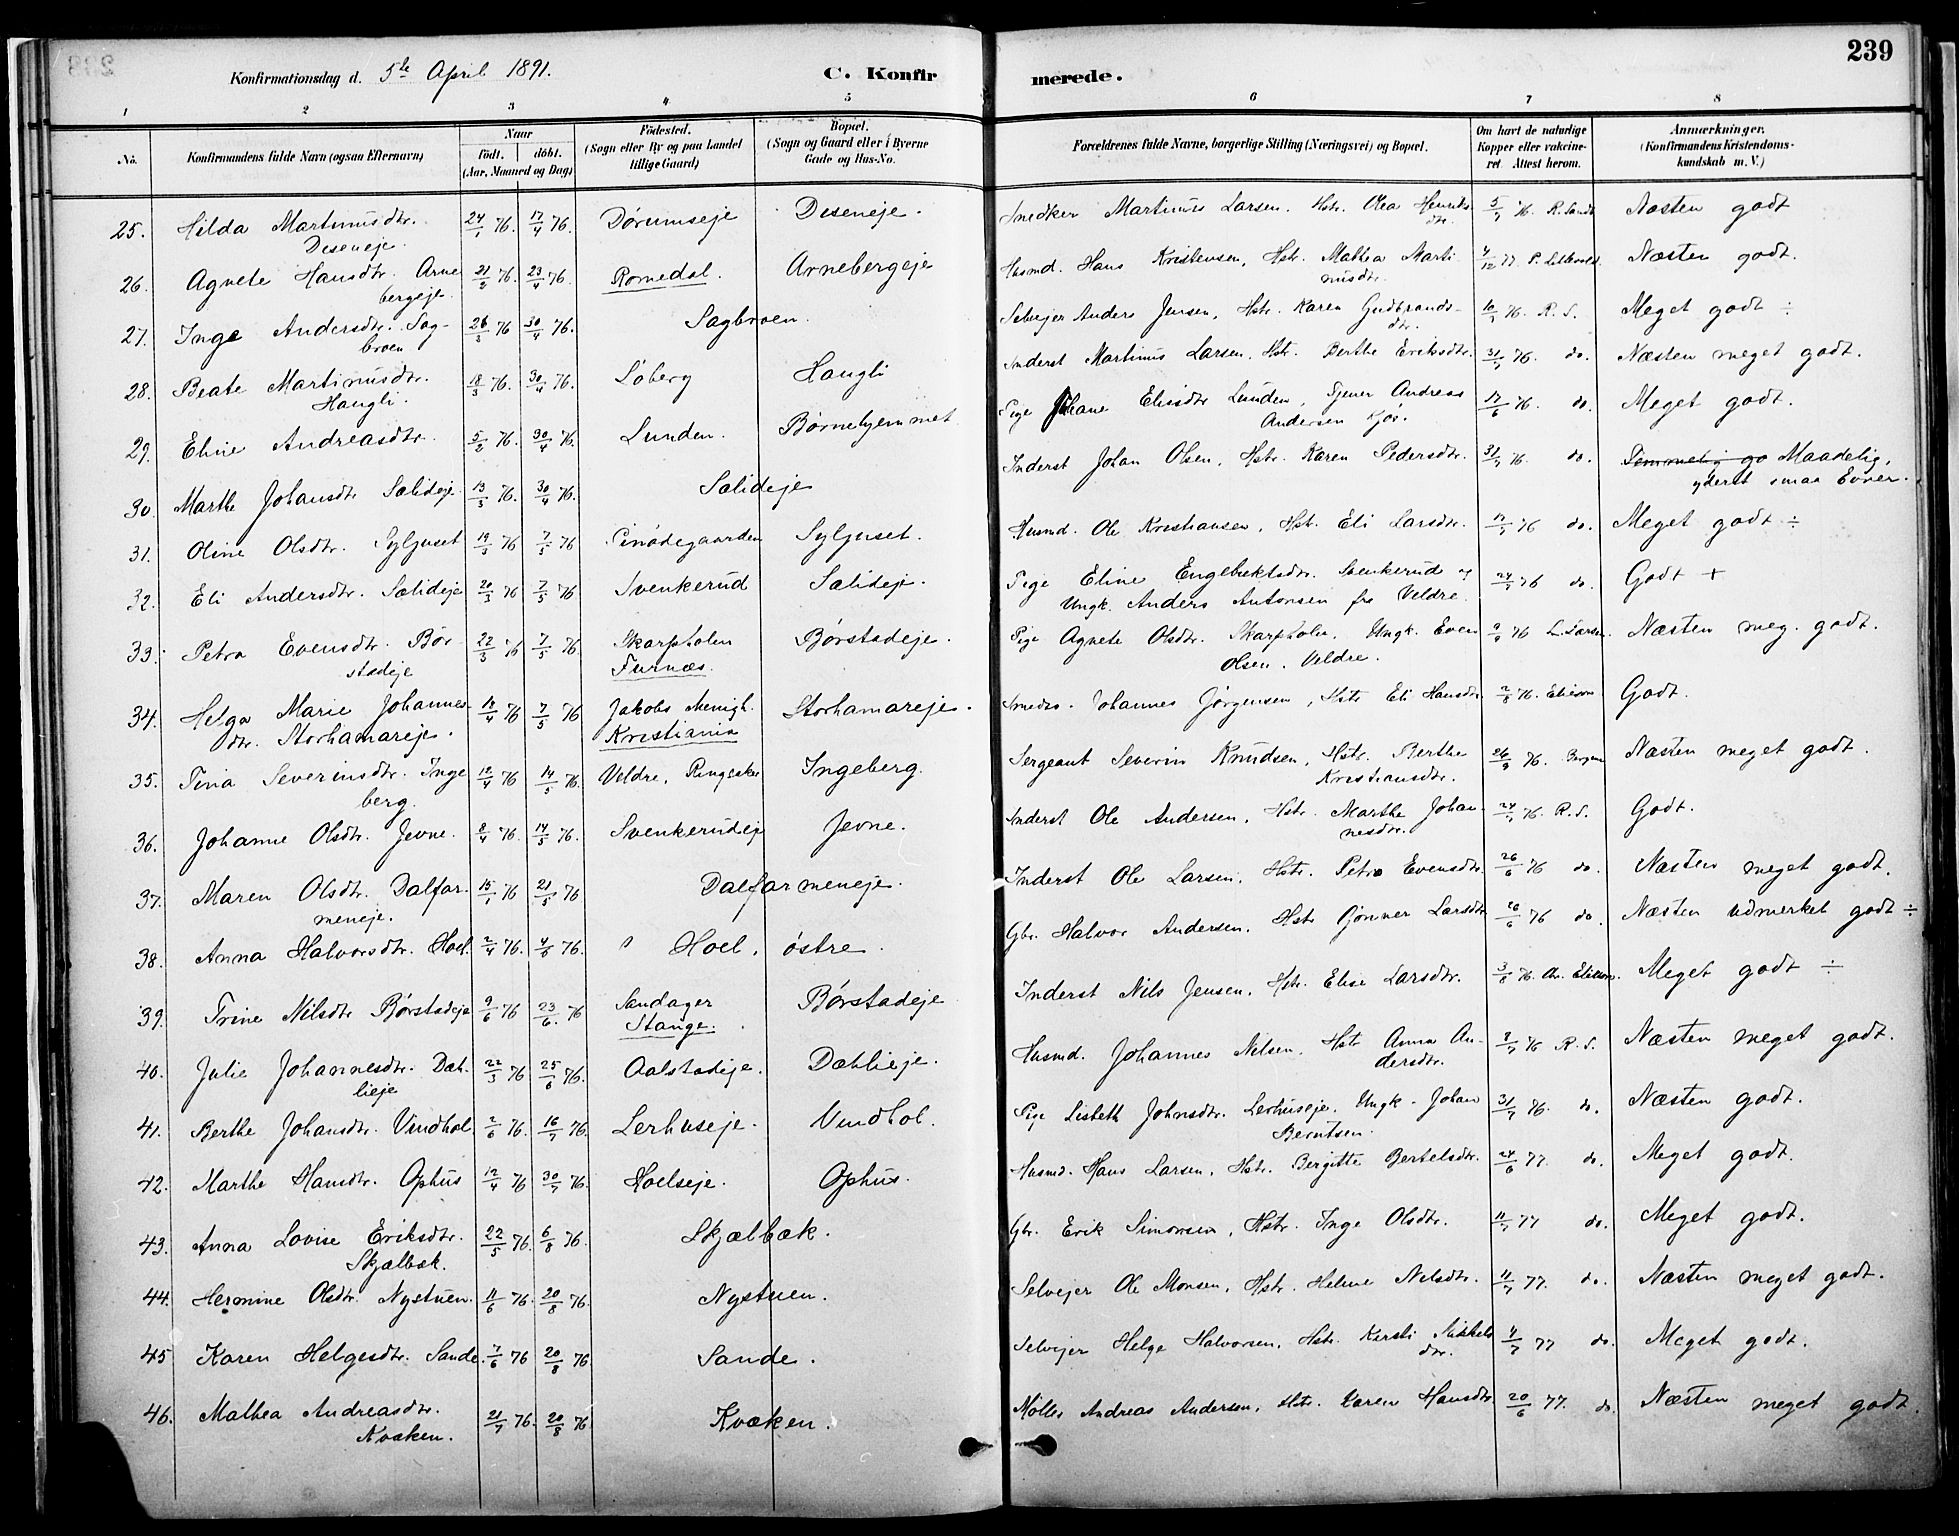 239
Konfirmationsdag d. 5te April 1891.
C. Konfirmerede.
1 2 3 4 5 6 7 8
No.
Konfirmandens fulde Navn (ogsaa Efternavn)
Naar
født. døbt.
(Aar, Maaned og Dag)
Fødested.
(Sogn eller By og paa Landet
tillige Gaard)
Bopæl.
(Sogn og Gaard eller i Byerne
Gade og Hus-No.
Forældrenes fulde Navne, borgerlige Stilling (Næringsvei) og Bopæl.
Om havt de naturlige
Kopper eller vakcine-
ret Attest herom.
Anmærkninger.
(Konfirmandens Kristendoms-
kundskab m. V.)
25. Hilda Martinusdtr. 24/1 76. 17/4 76. Dørumseje Deseneje. Snedker Martinus Larsen. Hstr. Olea Henriks 5/7 76. R. Sand Næsten godt
Deseneje. dtr.
26. Agnete Hansdtr. Arne 21/2 76. 23/4 76. Romedal. Arnebergeje Husmd. Hans Kristensen, Hstr. Mathea Marti 4/12 77 P. Næsten godt.
bergeje. nusdtr.
27. Inge Andersdtr. Sag- 26/3 76 30/4 76. Sagbroen. Selvejer Anders Jensen, Hstr. Karen Gudbrands- 10/7 76. R. S. Meget godt ÷
broen dtr.
28. Beate Martinusdtr. 18/3 76. 30/4 76. Løberg Haugli Inderst Martinus Larsen. Hstr. Berthe Eriksdtr. 31/7 76. do. Næsten meget godt.
Haugli.
29. Eline Andreasdtr. 5/2 76. 30/4 76. Lunden. Børnehjemmet Pige Johane Elisdtr Lunden, Tjener Andreas 17/6 76. do. Meget godt.
Andersen Kjos.
30. Marthe Johansdtr Sælideje 13/3 76. 30/4 76. Sælideje Inderst Johan Olsen, Hstr. Karen Pedersdtr. 31/7 76. do. Temmelig go Maadelig,
yderst smaa Evner.
31. Oline Olsdtr. Syljuset 19/3 76 7/5 76 Finsdegaarden Syljuset. Husmd. Ole Kristiansen, Hstr. Eli Larsdtr. 17/7 76 do. Meget godt ÷
32. Eli Andersdtr. Sælideje 20/3 76 7/5 76 Svenkerud Sælideje. Pige Eline Engebretsdtr. Svenkerud og 24/7 76 do. Godt +
Ungk. Anders Antonsen fra Veldre.
33. Petra Evensdtr. Bør- 22/3 76 7/5 76 Skarpholen Børstadeje. Pige Agnete Olsdtr. Skarpholen, Ungk. Even 9/9 76 L. Larsen. Næsten meg. godt.
stadeje Furnæs. Olsen. Veldre.
34. Helga Marie Johannes- 14/4 76 7/5 76 Jakobs Menigh. Storhamareje. Smeds. Johannes Jørgensen, Hstr Eli Hansdtr 2/8 76. Godt.
dtr. Storhamareje. Kristiania
35. Tina Severinsdtr. Inge 12/4 76 14/5 76. Veldre, Ringsaker Ingeberg. Sergeant Severin Knudsen, Hstr. Berthe 26/9 76. Næsten meget godt.
berg. Kristiansdtr.
36. Johanne Olsdtr. Jevne. 8/4 76. 14/5 76. Svenkerudeje Jevne. Inderst Ole Andersen, Hstr. Marthe Johan- 24/7 76. R. S. Godt.
nesdtr.
37. Maren Olsdtr. Dalfar- 15/1 76 21/5 76 Dalfarmeneje. Inderst Ole Larsen, Hstr. Petra Evensdtr. 26/6 76 do. Næsten meget godt.
meneje.
38. Anna Halvorsdtr. Hoel. 2/4 76. 4/6 76. Hoel, østre. Gbr. Halvor Andersen, Hstr Gjønner Larsdtr 26/6 76 do. Næsten udmerket godt ÷
39. Trine Nilsdtr Børstadeje 9/6 76 23/6. 76 Sandager Børstadeje Inderst Nils Jensen, Hstr. Elise Larsdtr. 3/8 76. Meget godt ÷
Stange.
40. Julie Johannesdtr. Dæh- 22/3 76 25/6 76. Aalstadeje. Dæhlieje. Husmd. Johannes Nilsen, Hstr Anna An- 8/7 76 R. S. Næsten meget godt.
lieje dersdtr.
41. Berthe Johansdtr. Vindhol 2/6 76. 16/7 76. Lerhuseje. Vindhol. Pige Lisbeth Johnsdtr. Lerhuseje. Ungk. Johan 31/7 76. do. Næsten godt.
Berntsen.
42. Marthe Hansdtr. Ophus 12/4 76 30/7 76. Hoelseje. Ophus. Husmd. Hans Larsen, Hstr. Bergitte Bertelsdtr. 24/6 77. do. Meget godt.
43. Anna Lovise Eriksdtr. 22/5 76. 6/8 76. Skjælbæk. Gbr. Erik Simonsen, Hstr. Inge Olsdtr. 11/7 77 do. Meget godt.
Skjælbæk.
44. Hermine Olsdtr. Nystuen. 11/6 76. 20/8 76. Nystuen. Selvejer Ole Monsen, Hstr. Helene Nilsdtr. 11/7 77. do. Næsten meget godt.
45 Karen Helgesdtr. Sande. 7/6 76 20/8 76 Sande. Selvejer Helge Halvorsen, Hstr. Kersti Mikkels 11/7 77 do. Meget godt.
dtr.
46. Mathea Andreasdtr. 21/7 76. 20/8 76 Kvæken. Møller Andreas Andersen, Hstr. Karen Hansdtr 20/6 77. do. Næsten meget godt.
Kvæken.